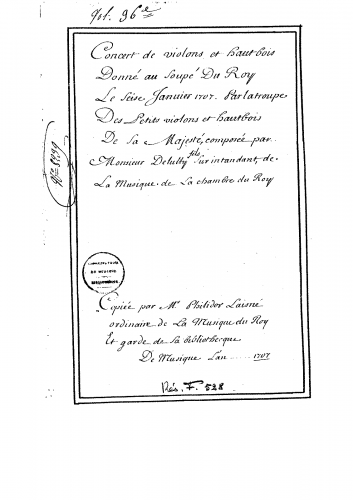 Concert de violons et hautbois
Donné au soupé Du Roy
Le seise Janvier 1707. Par la troupe
Des Petits violons et hautbois
De sa Majesté, composée par
Monsieur Delully fils Sur intandant, de
La Musique de La chambre du Roy
CONSERVATOIRE
DE MUSIQUE
BIBLIOTHÈQUE
Copiée par Mr Philidor L'aisné
ordinaire de La Musique du Roy
Et garde de sa bibliotheque
De Musique L'an ...... 1707
Rés. F. 528